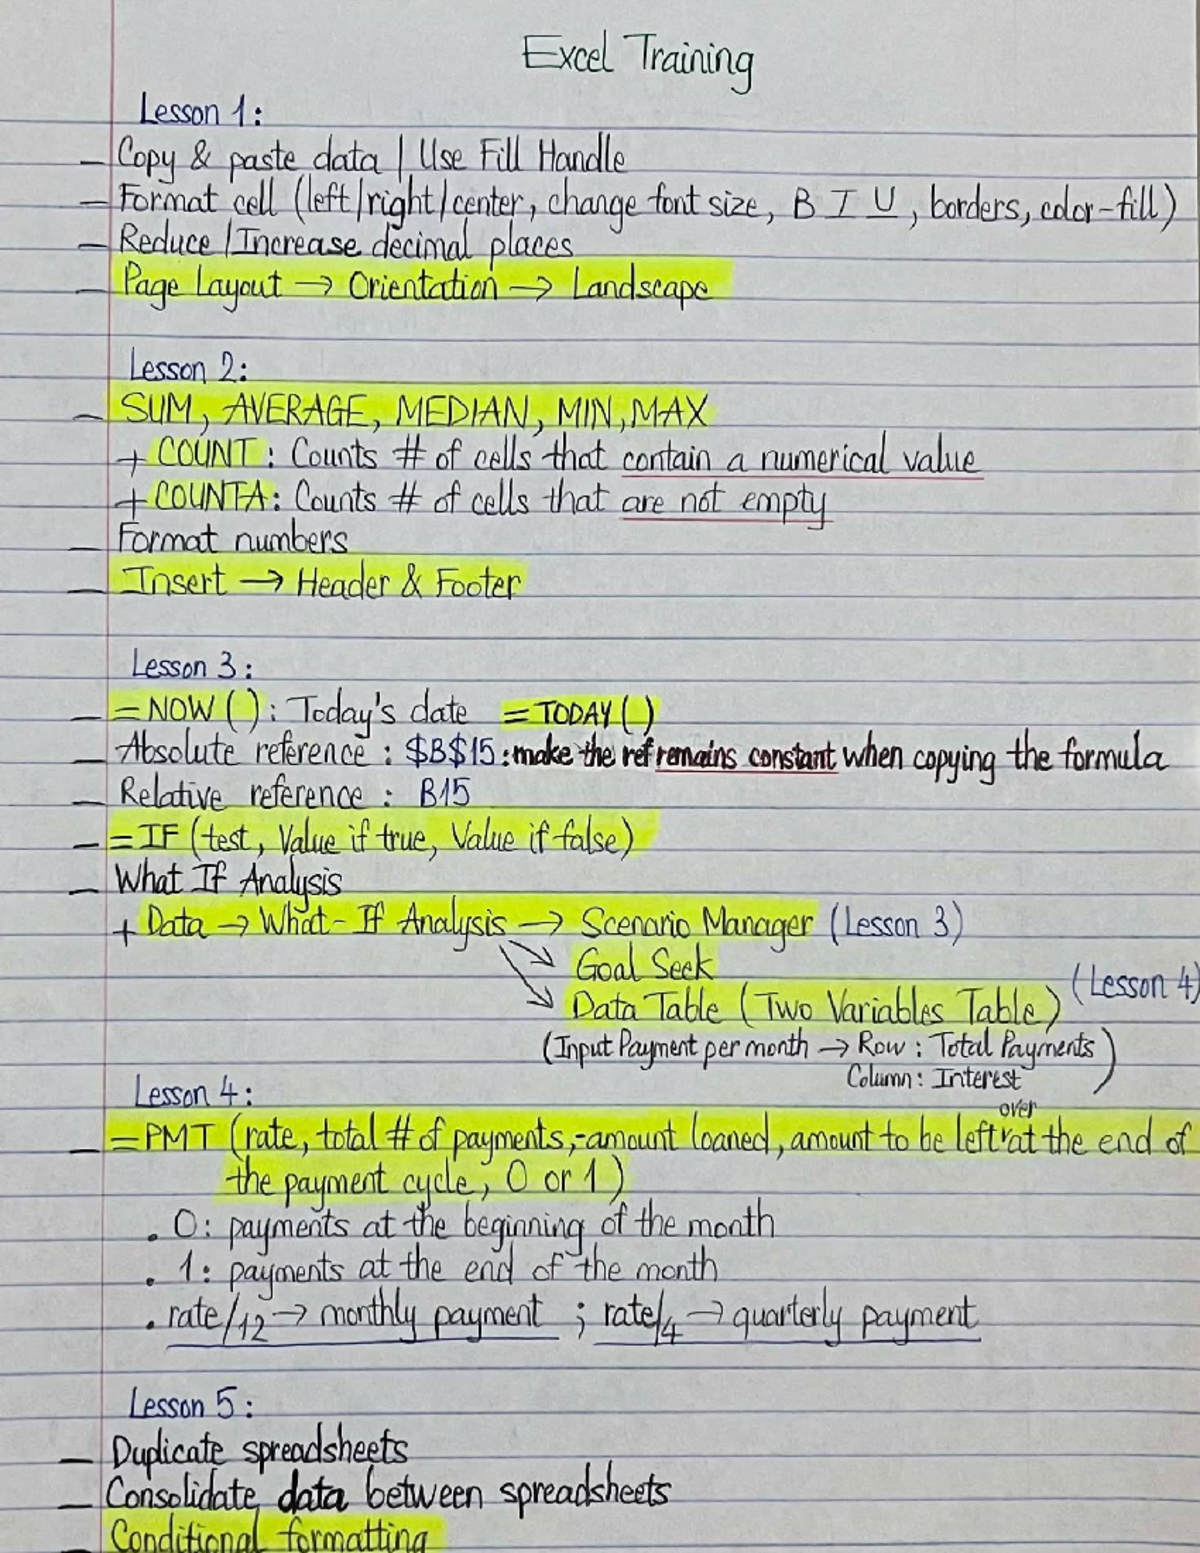 Excel Training
Lesson 1:
– Copy & paste data | Use Fill Handle
– Format cell (left/right/center, change font size, B I U, borders, color-fill)
– Reduce/Increase decimal places
– Page Layout → Orientation → Landscape
Lesson 2:
– SUM, AVERAGE, MEDIAN, MIN, MAX
+ COUNT: Counts # of cells that contain a numerical value
+ COUNTA: Counts # of cells that are not empty
– Format numbers
– Insert → Header & Footer
Lesson 3:
– =NOW(): Today's date =TODAY()
– Absolute reference: $B$15: make the ref remains constant when copying the formula
– Relative reference: B15
– =IF(test, Value if true, Value if false)
– What If Analysis
+ Data → What-If Analysis → Scenario Manager (Lesson 3)
↘ Goal Seek
↘ Data Table (Two Variables Table) (Lesson 4)
(Input Payment per month → Row: Total Payments
Column: Interest)
Lesson 4:
– =PMT (rate, total # of payments, -amount loaned, amount to be left over at the end of
the payment cycle, 0 or 1)
. 0: payments at the beginning of the month
. 1: payments at the end of the month
. rate/12 → monthly payment ; rate/4 → quarterly payment
Lesson 5:
– Duplicate spreadsheets
– Consolidate data between spreadsheets
– Conditional formatting